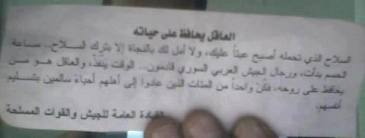 العاقل يحافظ على حياته
السلاح الذي تحمله أصبح عبئاً عليك، ولا أمل لك بالنجاة إلا بترك السلاح.. ساعة
الحسم بدأت، ورجال الجيش العربي السوري قادمون.. الوقت ينفذ، والعاقل هو من
يحافظ على روحه، فكن واحداً من المئات الذين عادوا إلى أهلهم أحياء سالمين بتسليم
أنفسهم.
القيادة العامة للجيش والقوات المسلحة